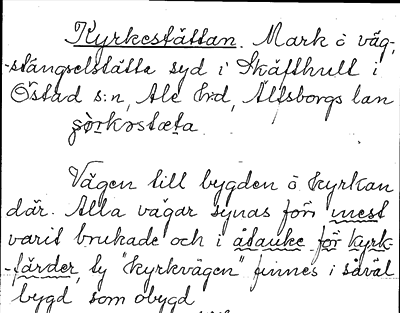 Kyrkestättan. Mark o väg-
-stängselstätta syd i Skäfthult i
Östad s:n, Ale h:d, Älfsborgs län
Vägen till bygden o kyrkan
där. Alla vägar synas förr mest
varit brukade och i åtanke för kyrk-
-färder, ty "kyrkvägen" finnes i såväl
bygd som obygd